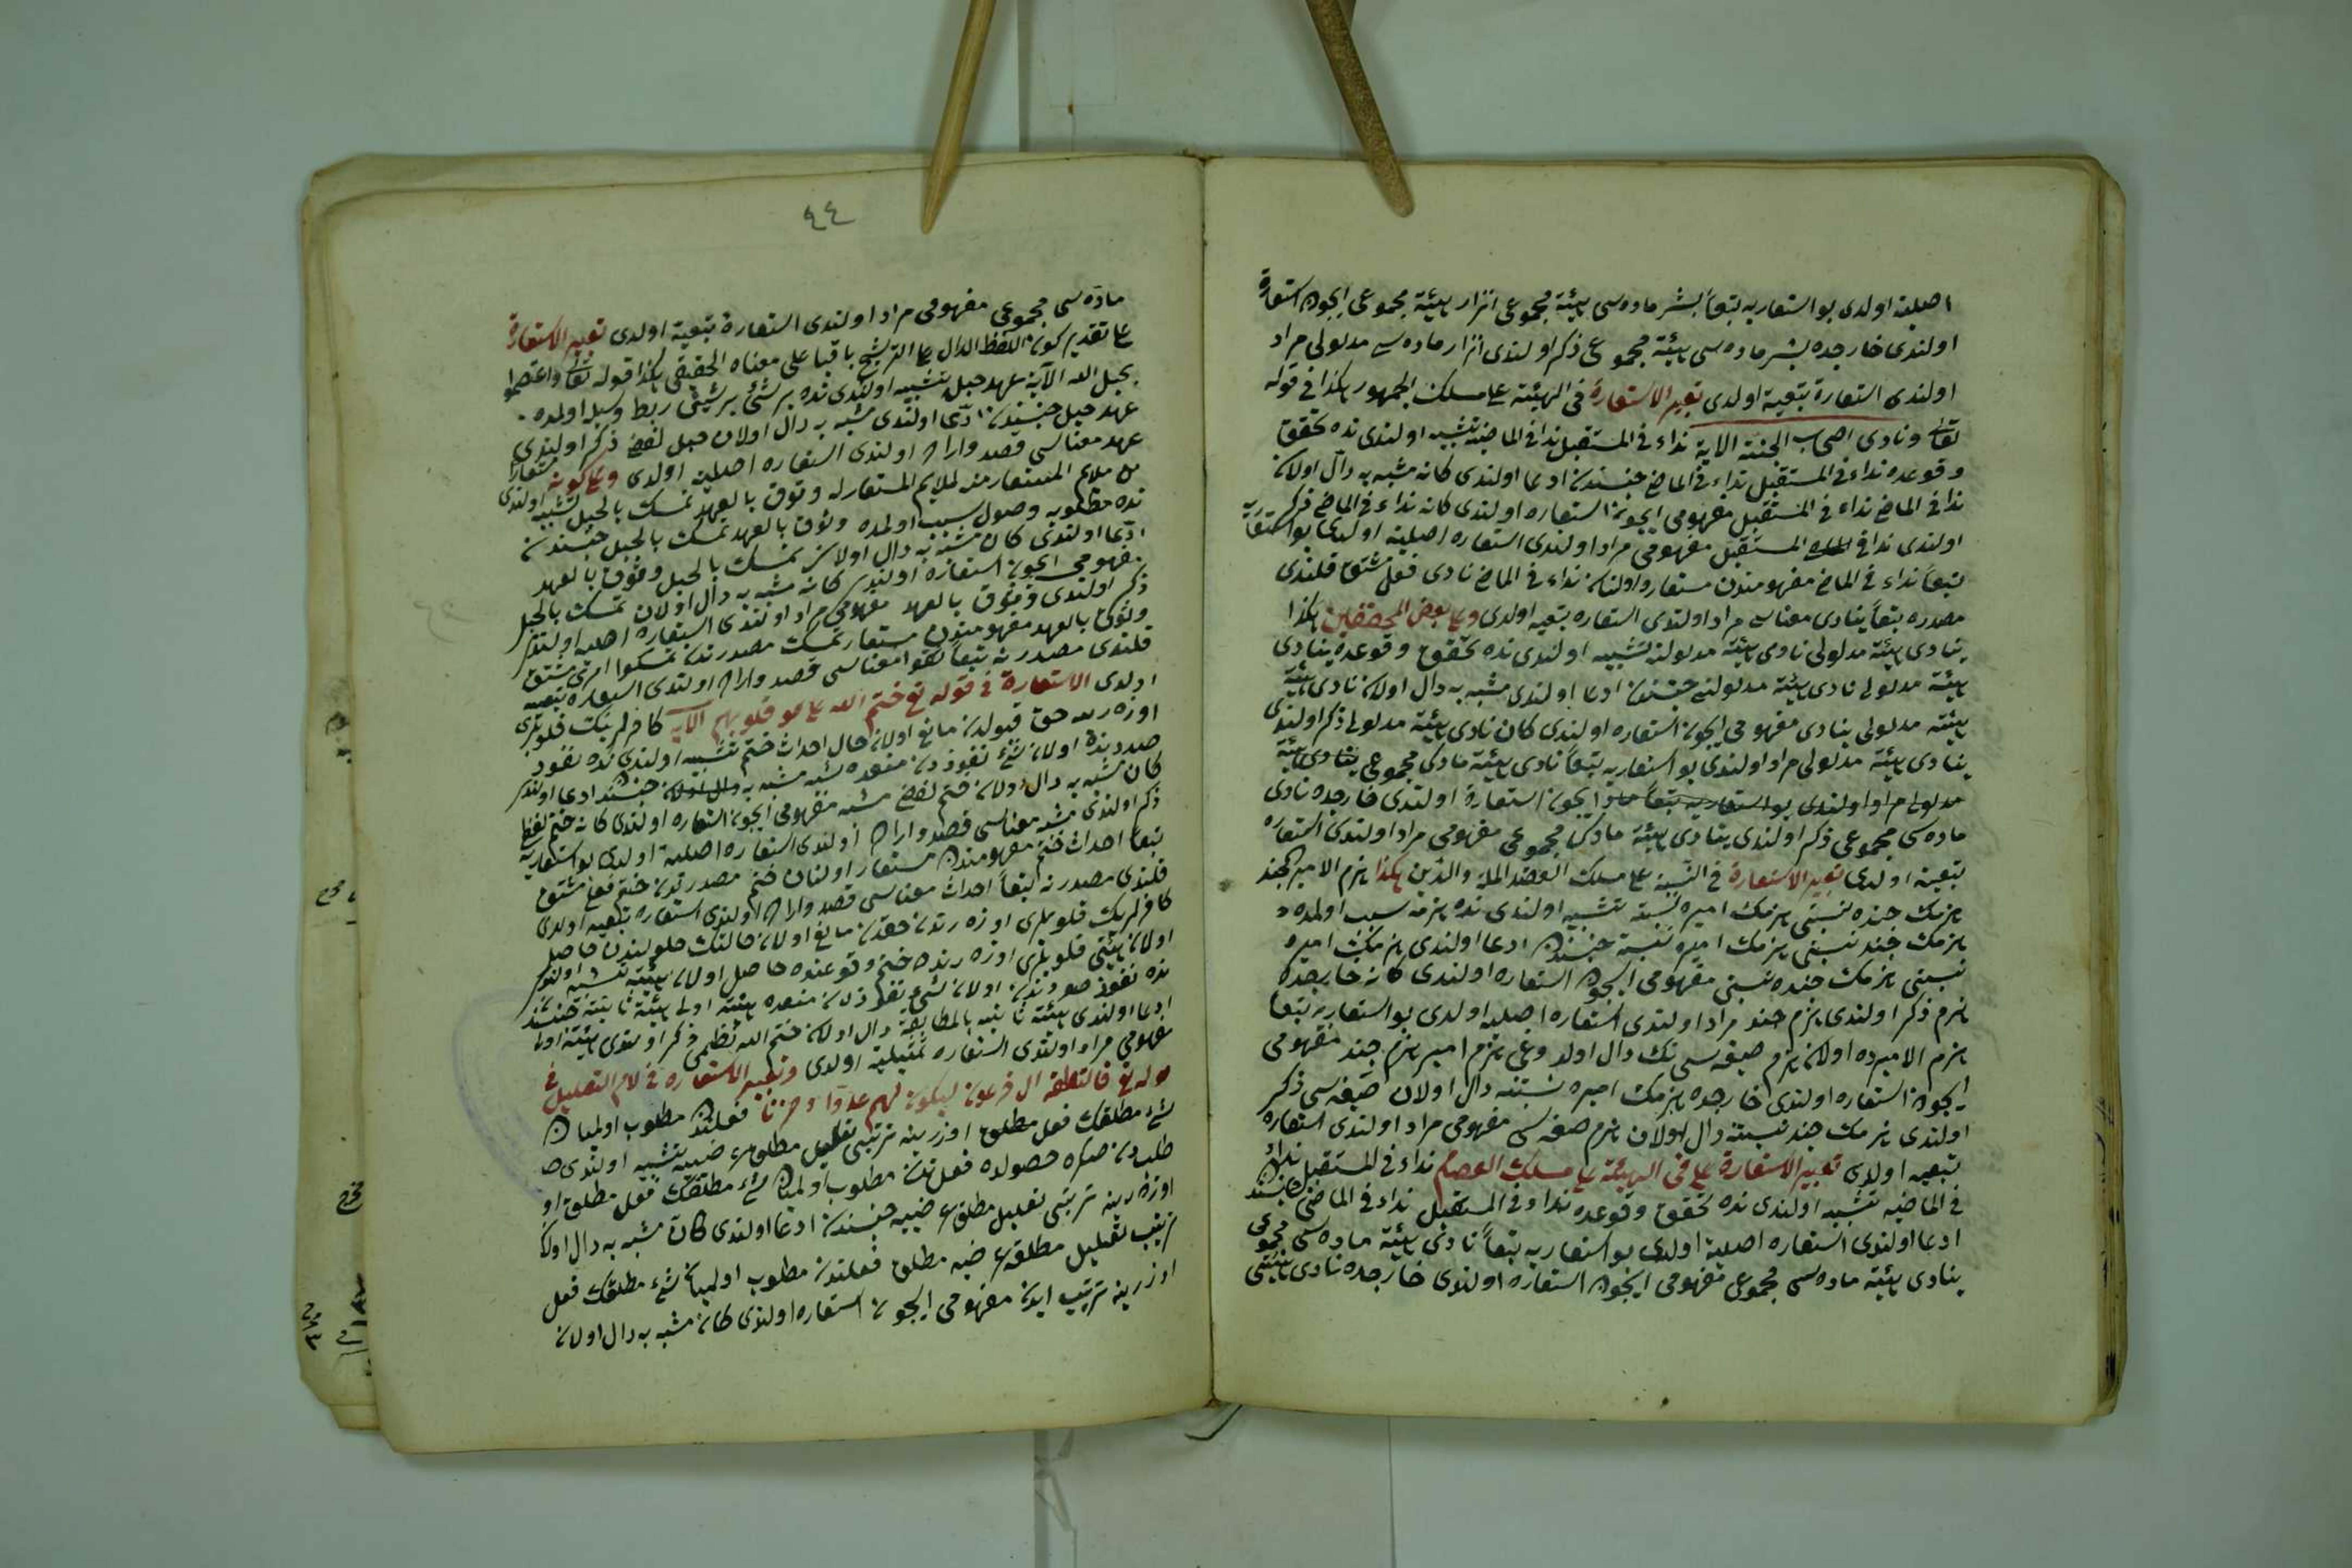 اصليه اولدى بو استعاريه تبعاً بشر ماده سى هيئة مجموعى انزار هيئة مجموعى ايچون استعاره
اولندى خارجده بشر ماده سى هيئة مجموعى ذكر اولندى انزار ماده سى مدلولى مراد
اولندى استعارة تبعية اولدى تعبير الاستعارة فى الهيئة على مسلك الجمهور هكذا فى قوله
تعالى ونادى اصحاب الجنة الاية نداء فى المستقبل ندا فى الماضيه تشبيه اولندى نده تحقق
وقوعده نداء فى المستقبل نداء فى الماضى جنسندن ادعا اولندى كانه مشبه به دال اولان
ندا فى الماضى نداء فى المستقبل مفهومى ايچون استعاره اولندى كانه نداء فى الماضى ذكر
اولندى ندا فى المستقبل مفهومى مراد اولندى استعاره اصليه اولدى بو استعاريه
تبعاً نداء فى الماضى مفهومندن مستعار اولنان نداء فى الماضى نادى فعل مشتق قلندى
مصدره تبعاً ينادى معناسى مراد اولندى استعاره تبعيه اولدى وعلى بعض المحققين هكذا
ينادى هيئة مدلولى نادى هيئة مدلولنه تشبيه اولندى نده تحقق وقوعده ينادى
هيئة مدلولى نادى هيئة مدلولنى جنسندن ادعا اولندى مشبه به دال اولان نادى هيئة
هيئة مدلولى ينادى مفهومى ايچون استعاره اولندى كان نادى هيئة مدلولى ذكر اولندى
ينادى هيئة مدلولى مراد اولندى بو استعاريه تبعاً نادى هيئة مادى مجموعى ينادى هيئة
مدلولى مراد اولندى بو استعاريه تبعاً ايچون استعارة اولندى خارجده نادى
ماده سى مجموعى ذكر اولندى ينادى هيئة مادى مجموعى مفهومى مراد اولندى استعاره
تبعية اولدى تعبير الاستعارة فى النسبة على مسلك العضد الملة والدين هكذا هزم الامير الجند
هزمك جنده نسبتى هزمك اميره نسبته تشبيه اولندى نده هزمه سبب اولمده
هزمك جند نسبتى هزمك اميره نسبة جنسندن ادعا اولندى هزمك اميره
نسبتى هزمك جنده نسبتى مفهومى ايچون استعاره اولندى كانه خارجده
هزم ذكر اولندى هزم جند مراد اولندى استعاره اصليه اولدى بو استعاريه تبعا
هزم الاميرده اولان هزم صيغه سى نك دال اولدوغى هزم امير هزم جند مفهومى
ايچون استعاره اولندى خارجده هزمك اميره نسبتنه دال اولان صيغه سى ذكر
اولندى هزمك جند نسبته دال اولان هزم صيغه سى مفهومى مراد اولندى استعاره
تبعيه اولدى تعبير الاستعارة على فى الهيئة على مسلك العصام نداء فى المستقبل نداء
فى الماضيه تشبيه اولندى نده تحقق وقوعده نداء فى المستقبل نداء فى الماضى جنسندن
ادعا اولندى استعاره اصليه اولدى بو استعاريه تبعاً نادى هيئة ماده سى مجموعى
ينادى هيئة ماده سى مجموعى مفهومى ايچون استعاره اولندى خارجده نادى هيئتى
٤٤
ماده سى مجموعى مفهومى مراد اولندى استعارة تبعية اولدى تعبير الاستعارة
على تقدير كون اللفظ الدال على الترشيح باقيا على معناه الحقيقى هكذا قوله تعالى واعتصموا
بحبل الله الآية عهد حبل تشبيه اولندى نده بر شئى بر شيئى ربط وسيله اولمده
عهد حبل جنسندن ادعا اولندى مشبه به دال اولان حبل لفظى ذكر اولندى
عهد معناسى قصد واراده اولندى استعاره اصليه اولدى وعلى كونه مستعاراً
من ملايم المستعار منه لملايم المستعار له وثوق بالعهد تمسك بالحبل تشبيه اولندى
نده مطلوبه وصول سبب اولمده وثوق بالعهد تمسك بالحبل جنسندن
ادعا اولندى كان مشبه به دال اولان تمسك بالحبل وثوق بالعهد
مفهومى ايچون استعاره اولندى كانه مشبه به دال اولان تمسك بالحبل
ذكر اولندى وثوق بالعهد مفهومى مراد اولندى استعاره اصليه اولندى
وثوق بالعهد مفهومندن مستعار تمسك مصدرندن تمسكوا امرى مشتق
قلندى مصدرنه تبعاً ثقوا معناسى قصد واراده اولندى استعاره تبعيه
اولدى الاستعارة فى قوله تع ختم الله على قلوبهم الآيه كافرلرينك قلوبلرى
اوزه رنده حق قبولدن مانع اولان حال احداث ختم تشبيه اولندى نده نفوذ
صددنده اولان شئ نفوذدن منعده مشبه مشبه به جنسندن ادعا اولندى
كان مشبه به دال اولان ختم لفظى مشبه مفهومى ايچون استعاره اولندى كانه ختم لفظ
ذكر اولندى مشبه معناسى قصد واراده اولندى استعاره اصليه اولدى بو استعاريه
تبعا احداث ختم مفهومندن مستعار اولنان ختم مصدرندن ختم فعل مشتق
قلندى مصدرنه تبعاً احداث معناسى قصد واراده اولندى استعاره تبعيه اولدى
كافرلرينك قلوبلرى اوزه رنده حقدن مانع اولان حالتك حلولندن حاصل
اولان هيئتى قلوبلرى اوزه رنده ختم وقوعنده حاصل اولان هيئته تشبيه اولندى
نده نفوذ صددنده اولان شئ نفوذدن منعده هيئة اولى هيئة ثانيه جنسندن
ادعا اولندى هيئة ثانيه بالمطابقة دال اولان ختم الله نظمى ذكر اولندى هيئة اولى
مفهومى مراد اولندى استعاره تمثيلية اولدى وتعبير الاستعاره فى لام التعليل فى
قوله تع فالتقطه ال فرعون ليكون لهم عدوا وحزنا فعلندن مطلوب اولميان
شئ مطلقك فعل مطلق اوزرينه ترتبى تعليل مطلق تشبيه اولندى
طلبدن صكره حصولده فعلندن مطلوب اولميان شئ مطلقك فعل مطلق او
اوزه رينه ترتبى تعليل مطلق جنسندن ادعا اولندى كان مشبه به دال اولان
ترتب تعليل مطلق مطلق فعلندن مطلوب اولميان شئ مطلقك فعل
اوزرينه ترتيب ايدن مفهومى ايچون استعاره اولندى كانه مشبه به دال اولان